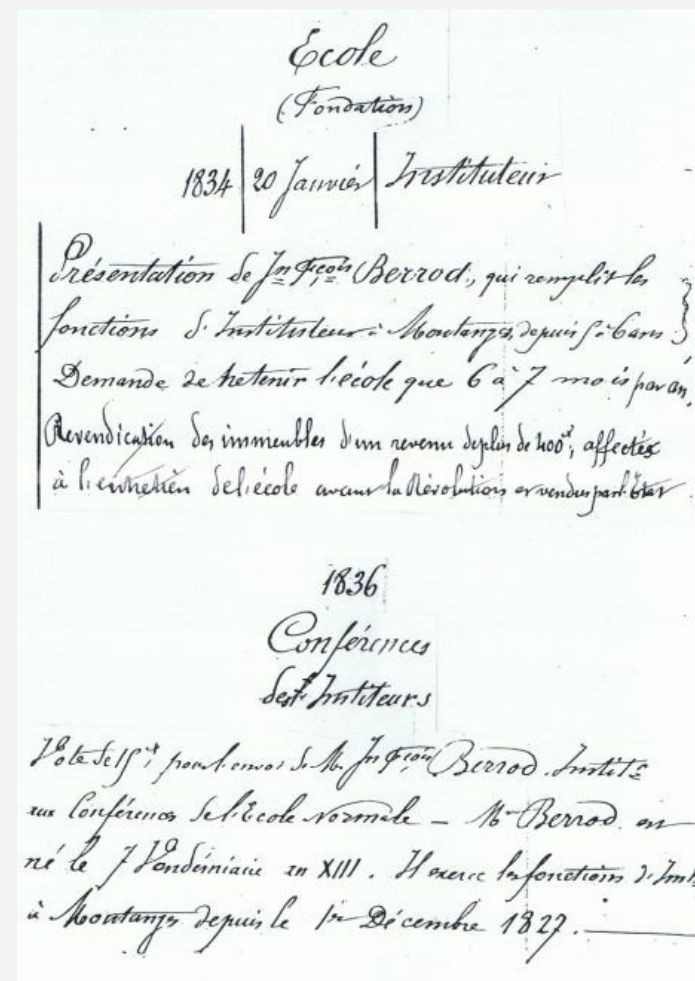 Ecole
(Fondation)
1834 | 20 Janvier | Instituteur
Présentation de Jn Fçois Berrod, qui remplit les
fonctions d'Instituteur à Montanges, depuis 5 à 6 ans.
Demande de ne tenir l'école que 6 à 7 mois par an.
Revendication des immeubles d'un revenu de plus de 400 f, affectés
à l'entretien de l'école avant la Révolution et vendus par l'Etat
1836
Conférences
des Instituteurs
Vote de 15 f, pour l'envoi de Mr Jn Fçois Berrod. Instit.
aux Conférences de l'Ecole normale – Mr Berrod est
né le 7 Vendémiaire an XIII. Il exerce les fonctions d'Inst
à Montanges depuis le 1er Décembre 1827.